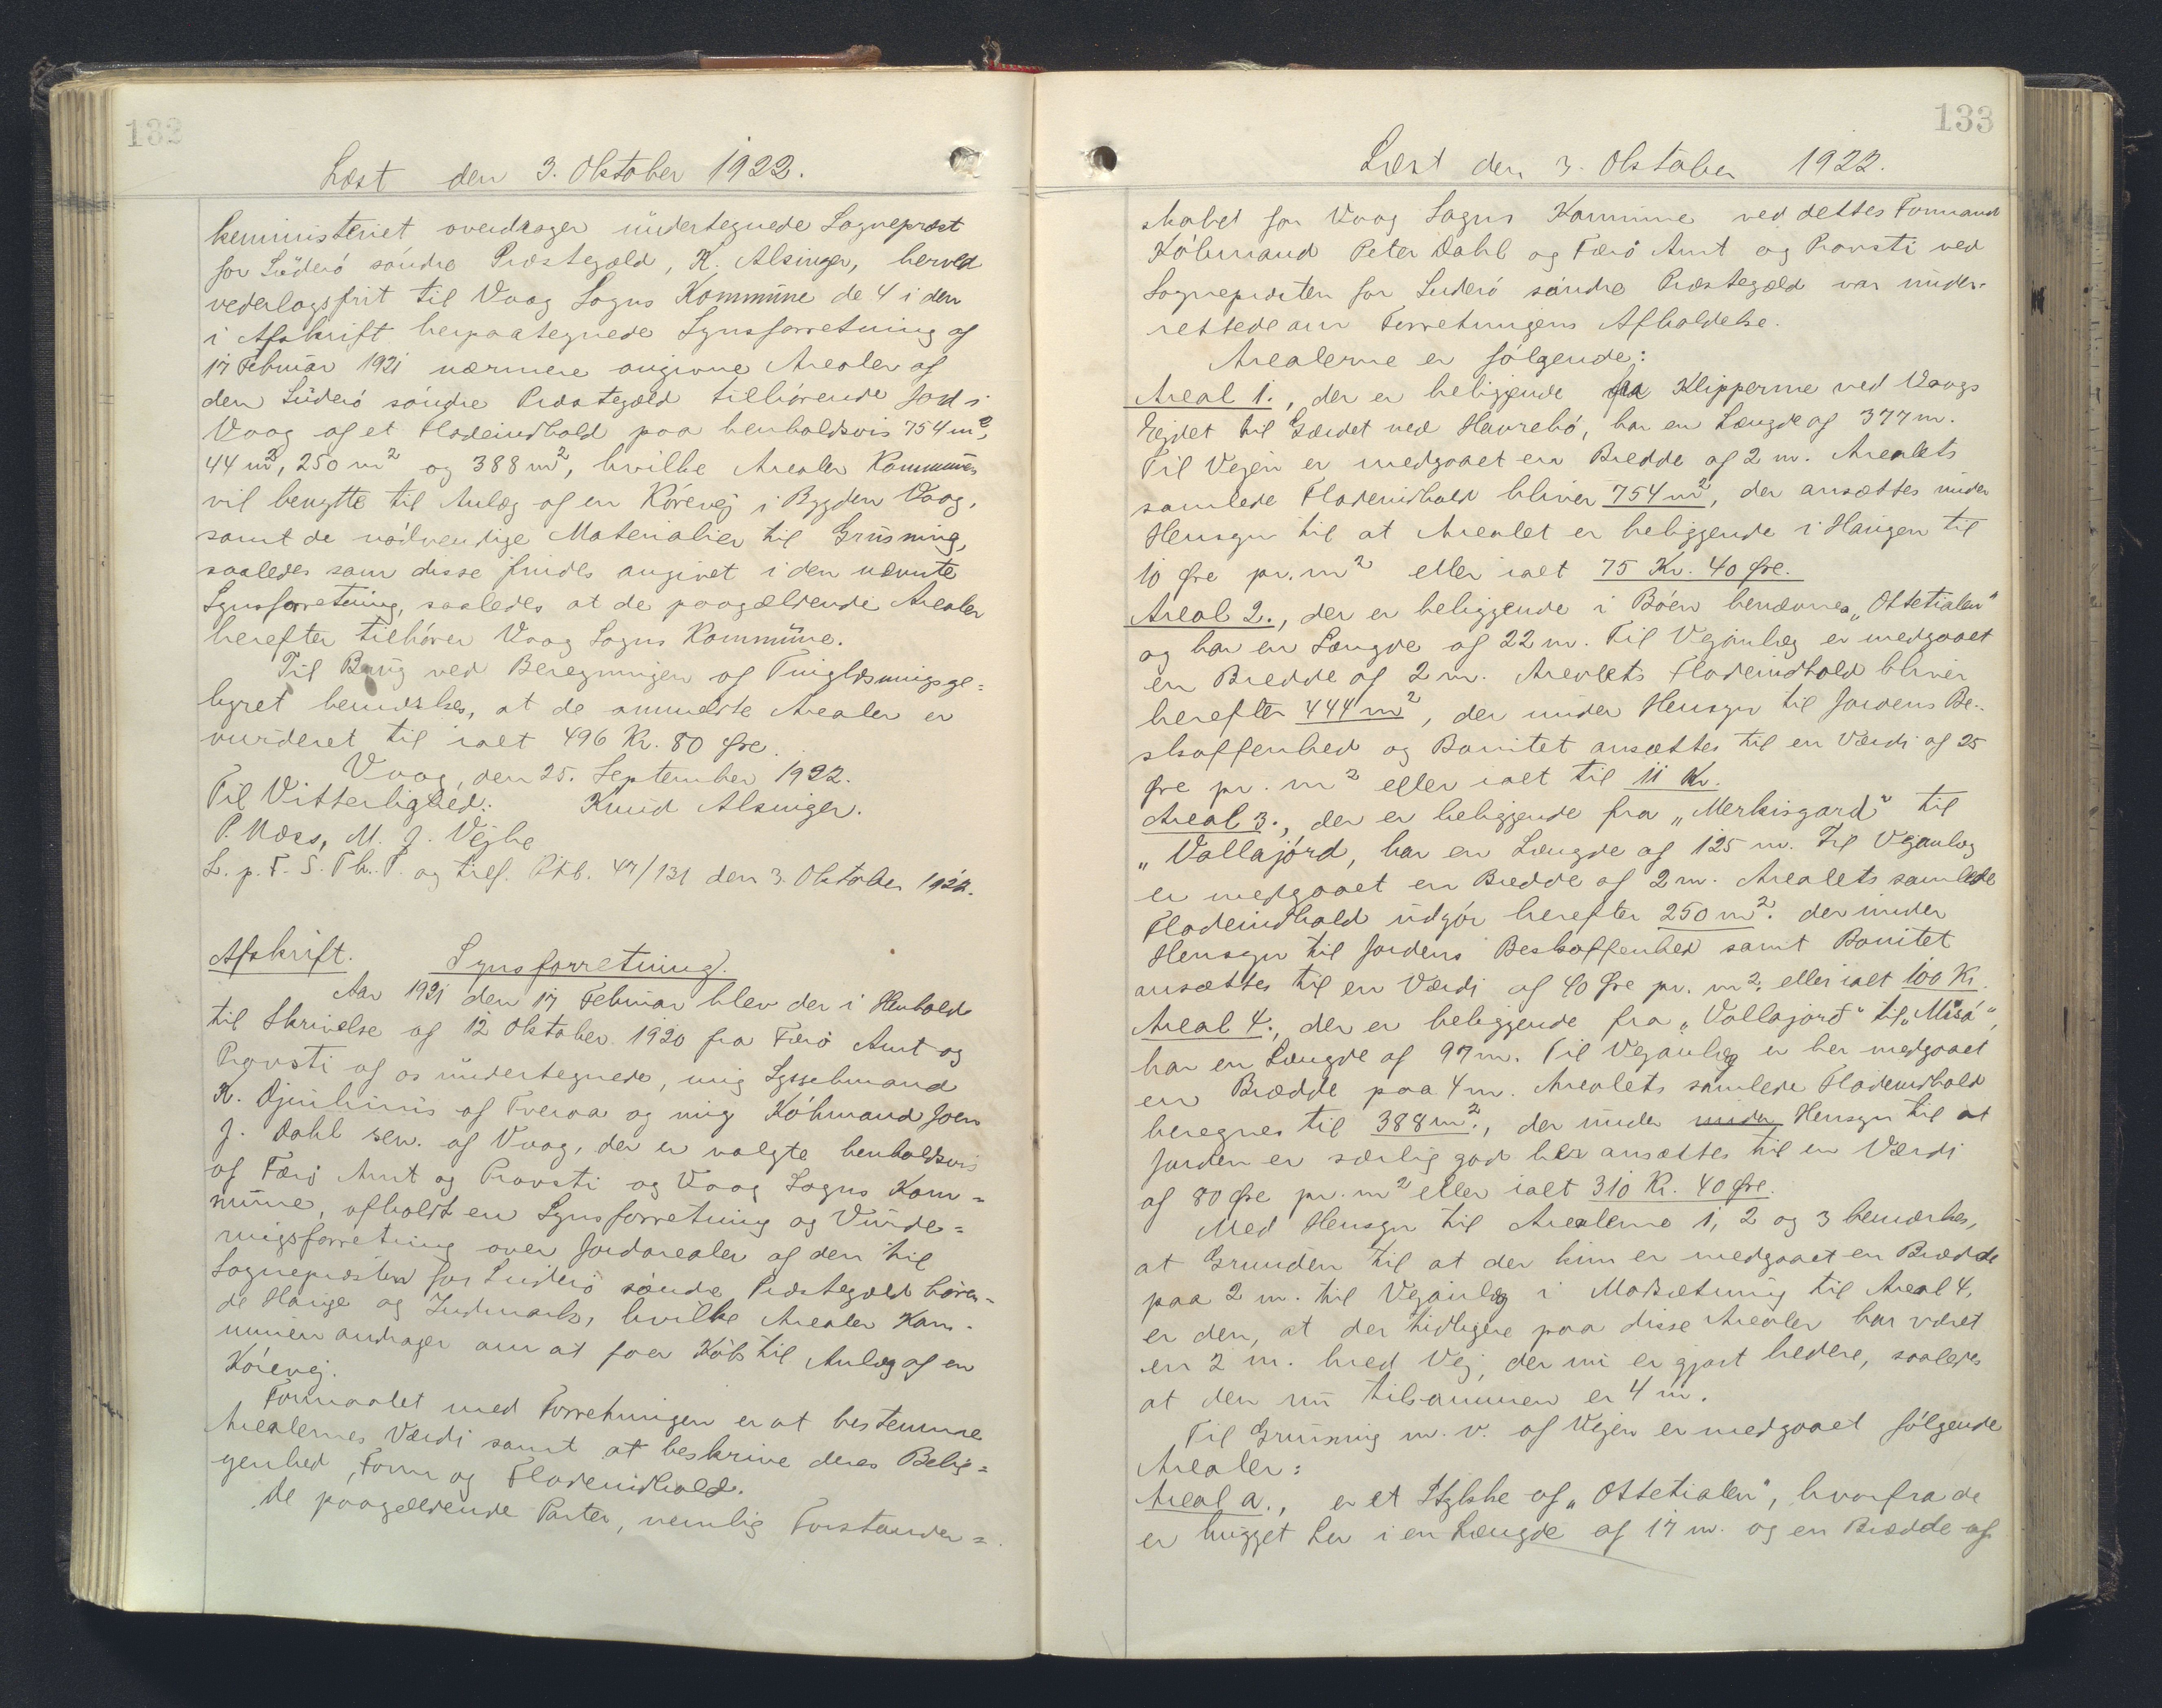 132
Læst den 3. Oktober 1922.
keministeriet overdrager undertegnede Sognepræst
for Suderö söndre Præstegæld, K. Alsinger, herved
vederlagsfrit til Vaag Sogns Kommune de 4 i den
i Afskrift herpaategnede Synsforretning af
17 Februar 1921 nærmere angivne Arealer af
den Suderö söndre Præstegæld tilhörende Jord i
Vaag af et Fladeindhold paa henholdsvis 754 m²,
44 m², 250 m² og 388 m², hvilke Arealer Kommunen
vil benytte til Anlæg af en Körevej i Bygden Vaag,
samt de nödvendige Materialier til Grusning,
saaledes som disse findes angivet i den nævnte
Synsforretning, saaledes at de paagældende Arealer
herefter tilhörer Vaag Sogns Kommune.
Til Brug ved Beregningen af Tinglæsningsge=
byret bemærkes, at de anmeldte Arealer er
vurderet til ialt 496 Kr. 80 Øre.
Vaag, den 25. September 1922.
Til Vitterlighed: Knud Alsinger.
P. Næss, M. J. Vejhe
L. p. F. S. Th. T. og tilf. Ptb. 47/131 den 3. Oktober 1922.
Afskrift. Synsforretning.
Aar 1921 den 17 Februar blev der i Henhold
til Skrivelse af 12 Oktober 1920 fra Færö Amt og
Provsti af os undertegnede, mig Sysselmand
K. Djurhuus af Tveraa og mig Köbmand Joen
J. Dahl sen. af Vaag, der er valgte henholdsvis
af Færö Amt og Provsti og Vaag Sogns Kom=
mune, afholdt en Synsforretning og Vurde=
ringsforretning over Jordarealer af den til
Sognepræsten for Suderö söndre Præstegæld hören-
de Hauge og Indmark, hvilke Arealer Kom-
munen andrager om at faa Köb til Anlæg af en
Körevej.
Formaalet med Forretningen er at bestemme
Arealernes Værdi samt at beskrive deres Belig=
genhed, Form og Fladeindhold.
De paagældende Parter, nemlig Forstander=
133
Læst den 3. Oktober 1922.
skabet for Vaag Sogns Kommune ved dettes Formand
Köbmand Peter Dahl og Færö Amt og Provsti ved
Sognepræsten for Suderö söndre Præstegæld var under-
rettede om Forretningens Afholdelse.
Arealerne er fölgende:
Areal 1., der er beliggende fra Klipperne ved Vaags
Ejdet til Gærdet ved Havrebö, har en Længde af 377 m.
Til Vejen er medgaaet en Bredde af 2 m. Arealets
samlede Fladeindhold bliver 754 m², der ansættes under
Hensyn til at Arealet er beliggende i Haugen til
10 Øre pr. m² eller ialt 75 Kr. 40 Øre.
Areal 2., der er beliggende i Böen benævnes „Ottetialen"
og har en Længde af 22 m. Til Vejanlæg er medgaaet
en Bredde af 2 m. Arealets Fladeindhold bliver
herefter 444 m², der under Hensyn til Jordens Be-
skaffenhed og Bonitet ansættes til en Værdi af 25
Øre pr. m² eller ialt til 11 Kr.
Areal 3., der er beliggende fra „Merkisgard" til
„Vallajörd, har en Længde af 125 m. Til Vejanlæg
er medgaaet en Bredde af 2 m. Arealets samlede
Fladeindhold udgör herefter 250 m². der under
Hensyn til Jordens Beskaffenhed samt Bonitet
ansættes til en Værdi af 40 Øre pr. m². eller ialt 100 Kr.
Areal 4., der er beliggende fra „Vallajörd" til „Misá",
har en Længde af 97 m. Til Vejanlæg er her medgaaet
en Brædde paa 4 m. Arealets samlede Fladeindhold
beregnes til 388 m²., der under under Hensyn til at
Jorden er særlig god her ansættes til en Værdi
af 80 Øre pr. m² eller ialt 310 Kr. 40 Øre.
Med Hensyn til Arealerne 1, 2 og 3 bemærkes,
at Grunden til at der kun er medgaaet en Brædde
paa 2 m. til Vejanlæg i Modsætning til Areal 4,
er den, at der tidligere paa disse Arealer har været
en 2 m. bred Vej, der nu er gjort bredere, saaledes
at den nu tilsammen er 4 m.
Til Grusning m. v. af Vejen er medgaaet fölgende
Arealer:
Areal a., er et Stykke af „Ottetialen", hvorfra de
er hugget Ler i en Længde af 17 m. og en Brædde af